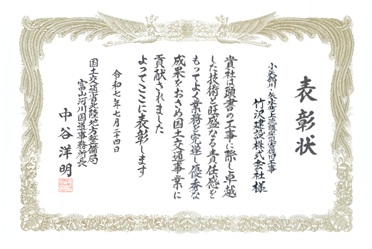 表彰状
竹沢建設株式会社様
貴社は頭書の工事に際し卓越
した技術と旺盛なる責任感を
もってよく業務を完遂し優秀な
成果をおさめ国土交通事業に
貢献されました
よってここに表彰します
令和七年七月二十四日
国土交通省北陸地方整備局
富山河川国道事務所長
中谷洋明